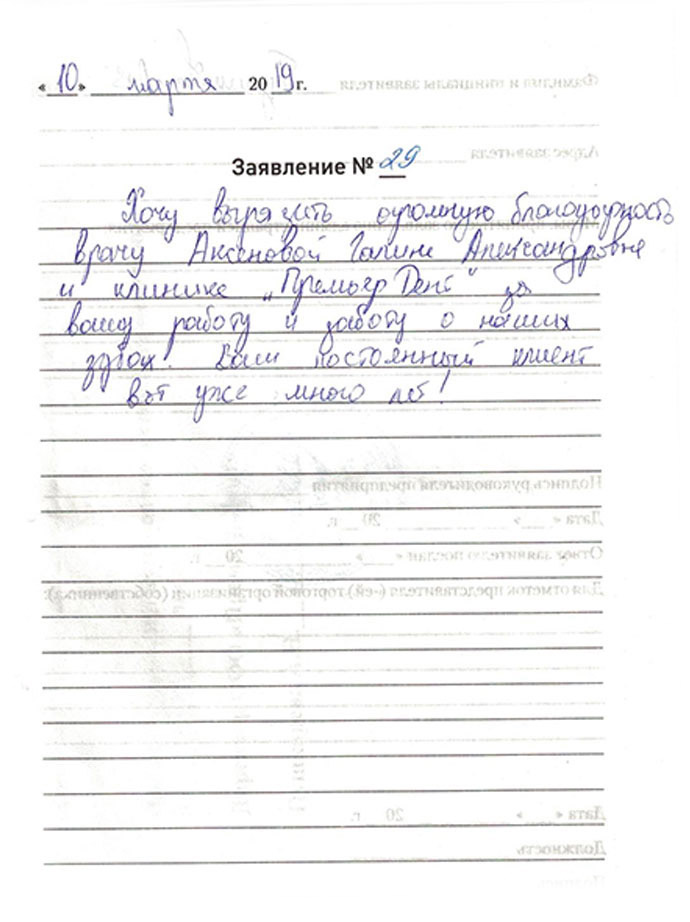 «10» марта 2019 г.
Заявление № 29
Хочу выразить огромную благодарность
врачу Аксеновой Галине Александровне
и клинике „Премьер Дент" за
вашу работу и заботу о наших
зубах. Ваш постоянный клиент
вот уже много лет!
Фамилия и инициалы заявителя
Адрес заявителя
Подпись руководителя предприятия
Дата « » 20 г.
Ответ заявителю послан « » 20 г.
Для отметок представителя (-ей) торговой организации (собственника):
Дата « » 20 г.
Должность